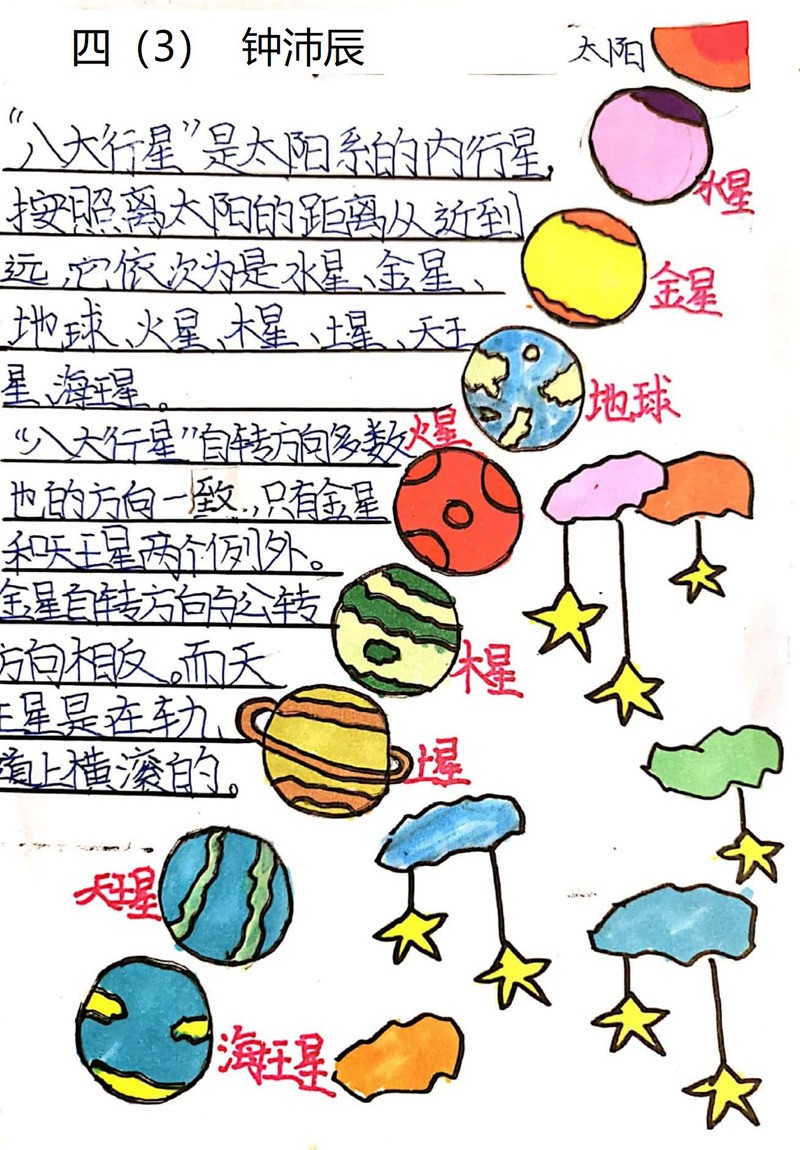 四（3） 钟沛辰
太阳
“八大行星”是太阳系的内行星，
水星
按照离太阳的距离从近到
远，它依次为是水星、金星、
金星
地球、火星、木星、土星、天王
星、海王星。
地球
“八大行星”自转方向多数
火星
也的方向一致，只有金星
和天王星两个例外。
金星自转方向与公转
方向相反。而天
木星
王星是在轨
土星
道上横滚的。
天王星
海王星